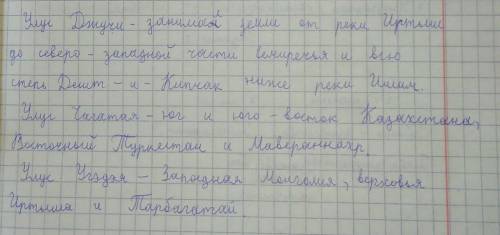 Улус Джучи - занимал земли от реки Иртыш
до северо - западной части Семиречья и всю
степь Дешт - и - Кипчак ниже реки Итиля.
Улус Чагатая - юг и юго - восток Казахстана,
Восточный Туркестан и Мавераннахр.
Улус Угэдэя - Западная Монголия, верховья
Иртыша и Тарбагатай.